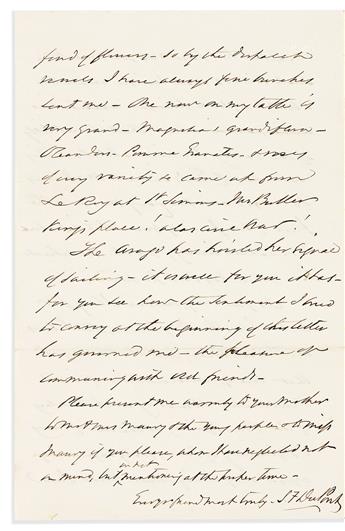 fond of flowers – so by the dispatch
vessels I have always fine bunches
sent me – One now on my table is
very grand – Magnolia grandiflora –
Oleanders – Pomme Granates – & roses
of every variety & came at from
Le Roy at St Simons – Mr Butler
King's place! alas civil War!
The Arago has hoisted her signal
of sailing – it is well for you it has –
for you see how the sentiment I tried
to convey at the beginning of this letter
has governed me – the pleasure of
communing with old friends –
Please present me warmly to your Mother
to Mrs Maury & the young people & to Miss
Maury if you please, whom I have neglected not
in mind, but in not mentioning at the proper time –
Ever your friend most truly – S F DuPont